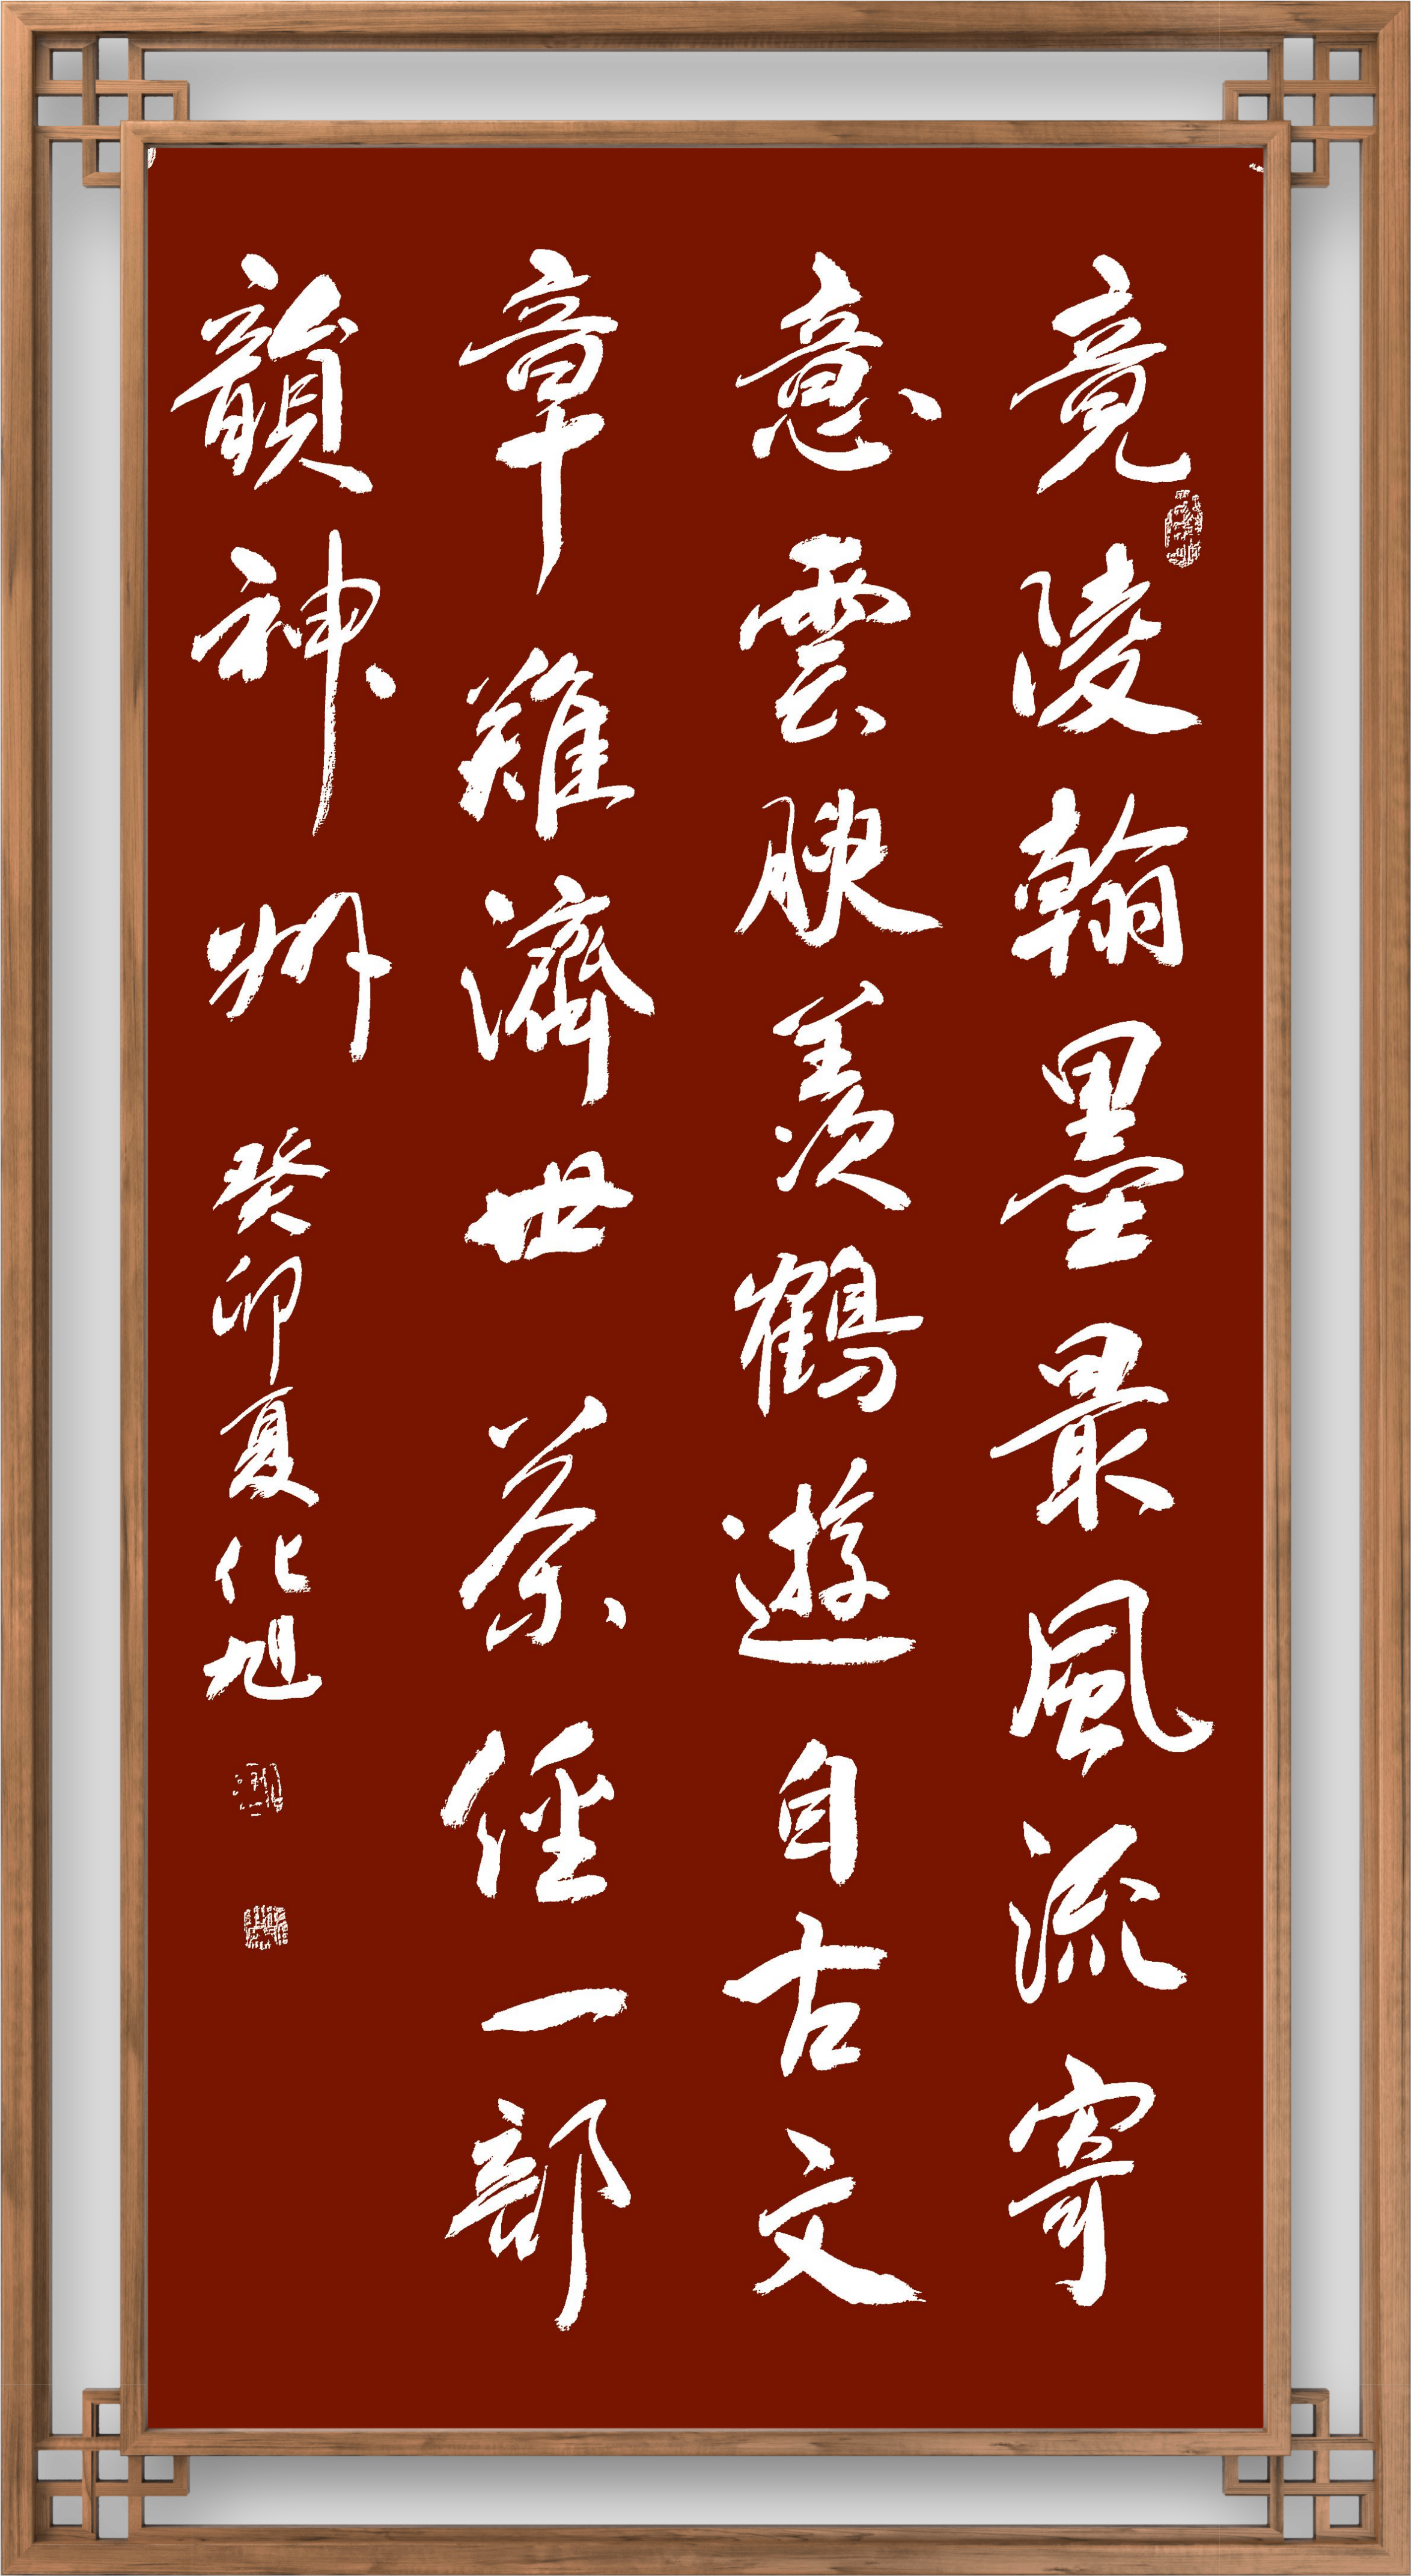 竟陵翰墨最風流寄
意雲腴羨鶴遊自古文
章難濟世茶經一部
韻神州
癸卯夏化旭